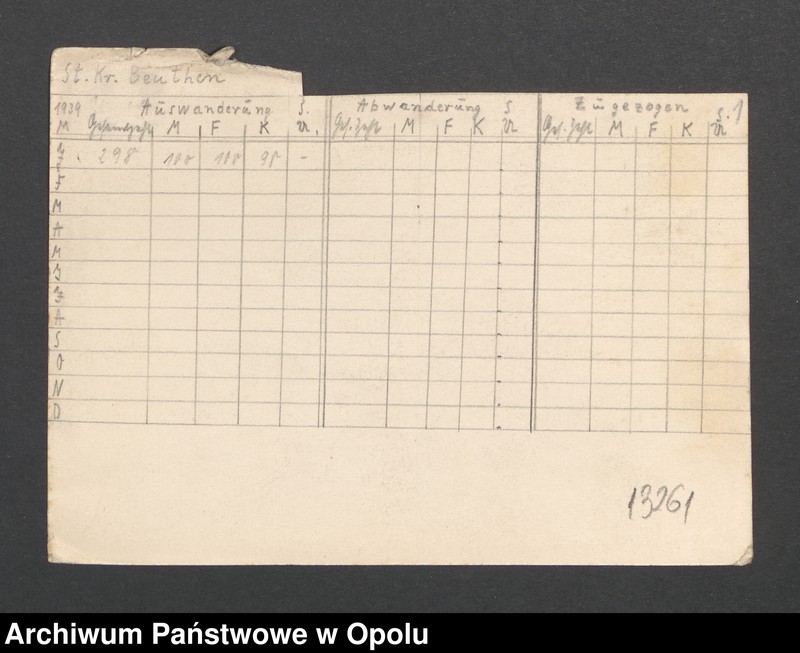 St. Kr. Beuthen
1939 Auswanderung S. Abwanderung S Zugezogen S. 1
M Gesamtzahl M F K Vt. Ges. Zahl M F K Vt Ges. Zahl M F K Vt
J 298 100 100 98 -
F
M
A
M
J
J
A
S
O
N
D
13261
Archiwum Państwowe w Opolu